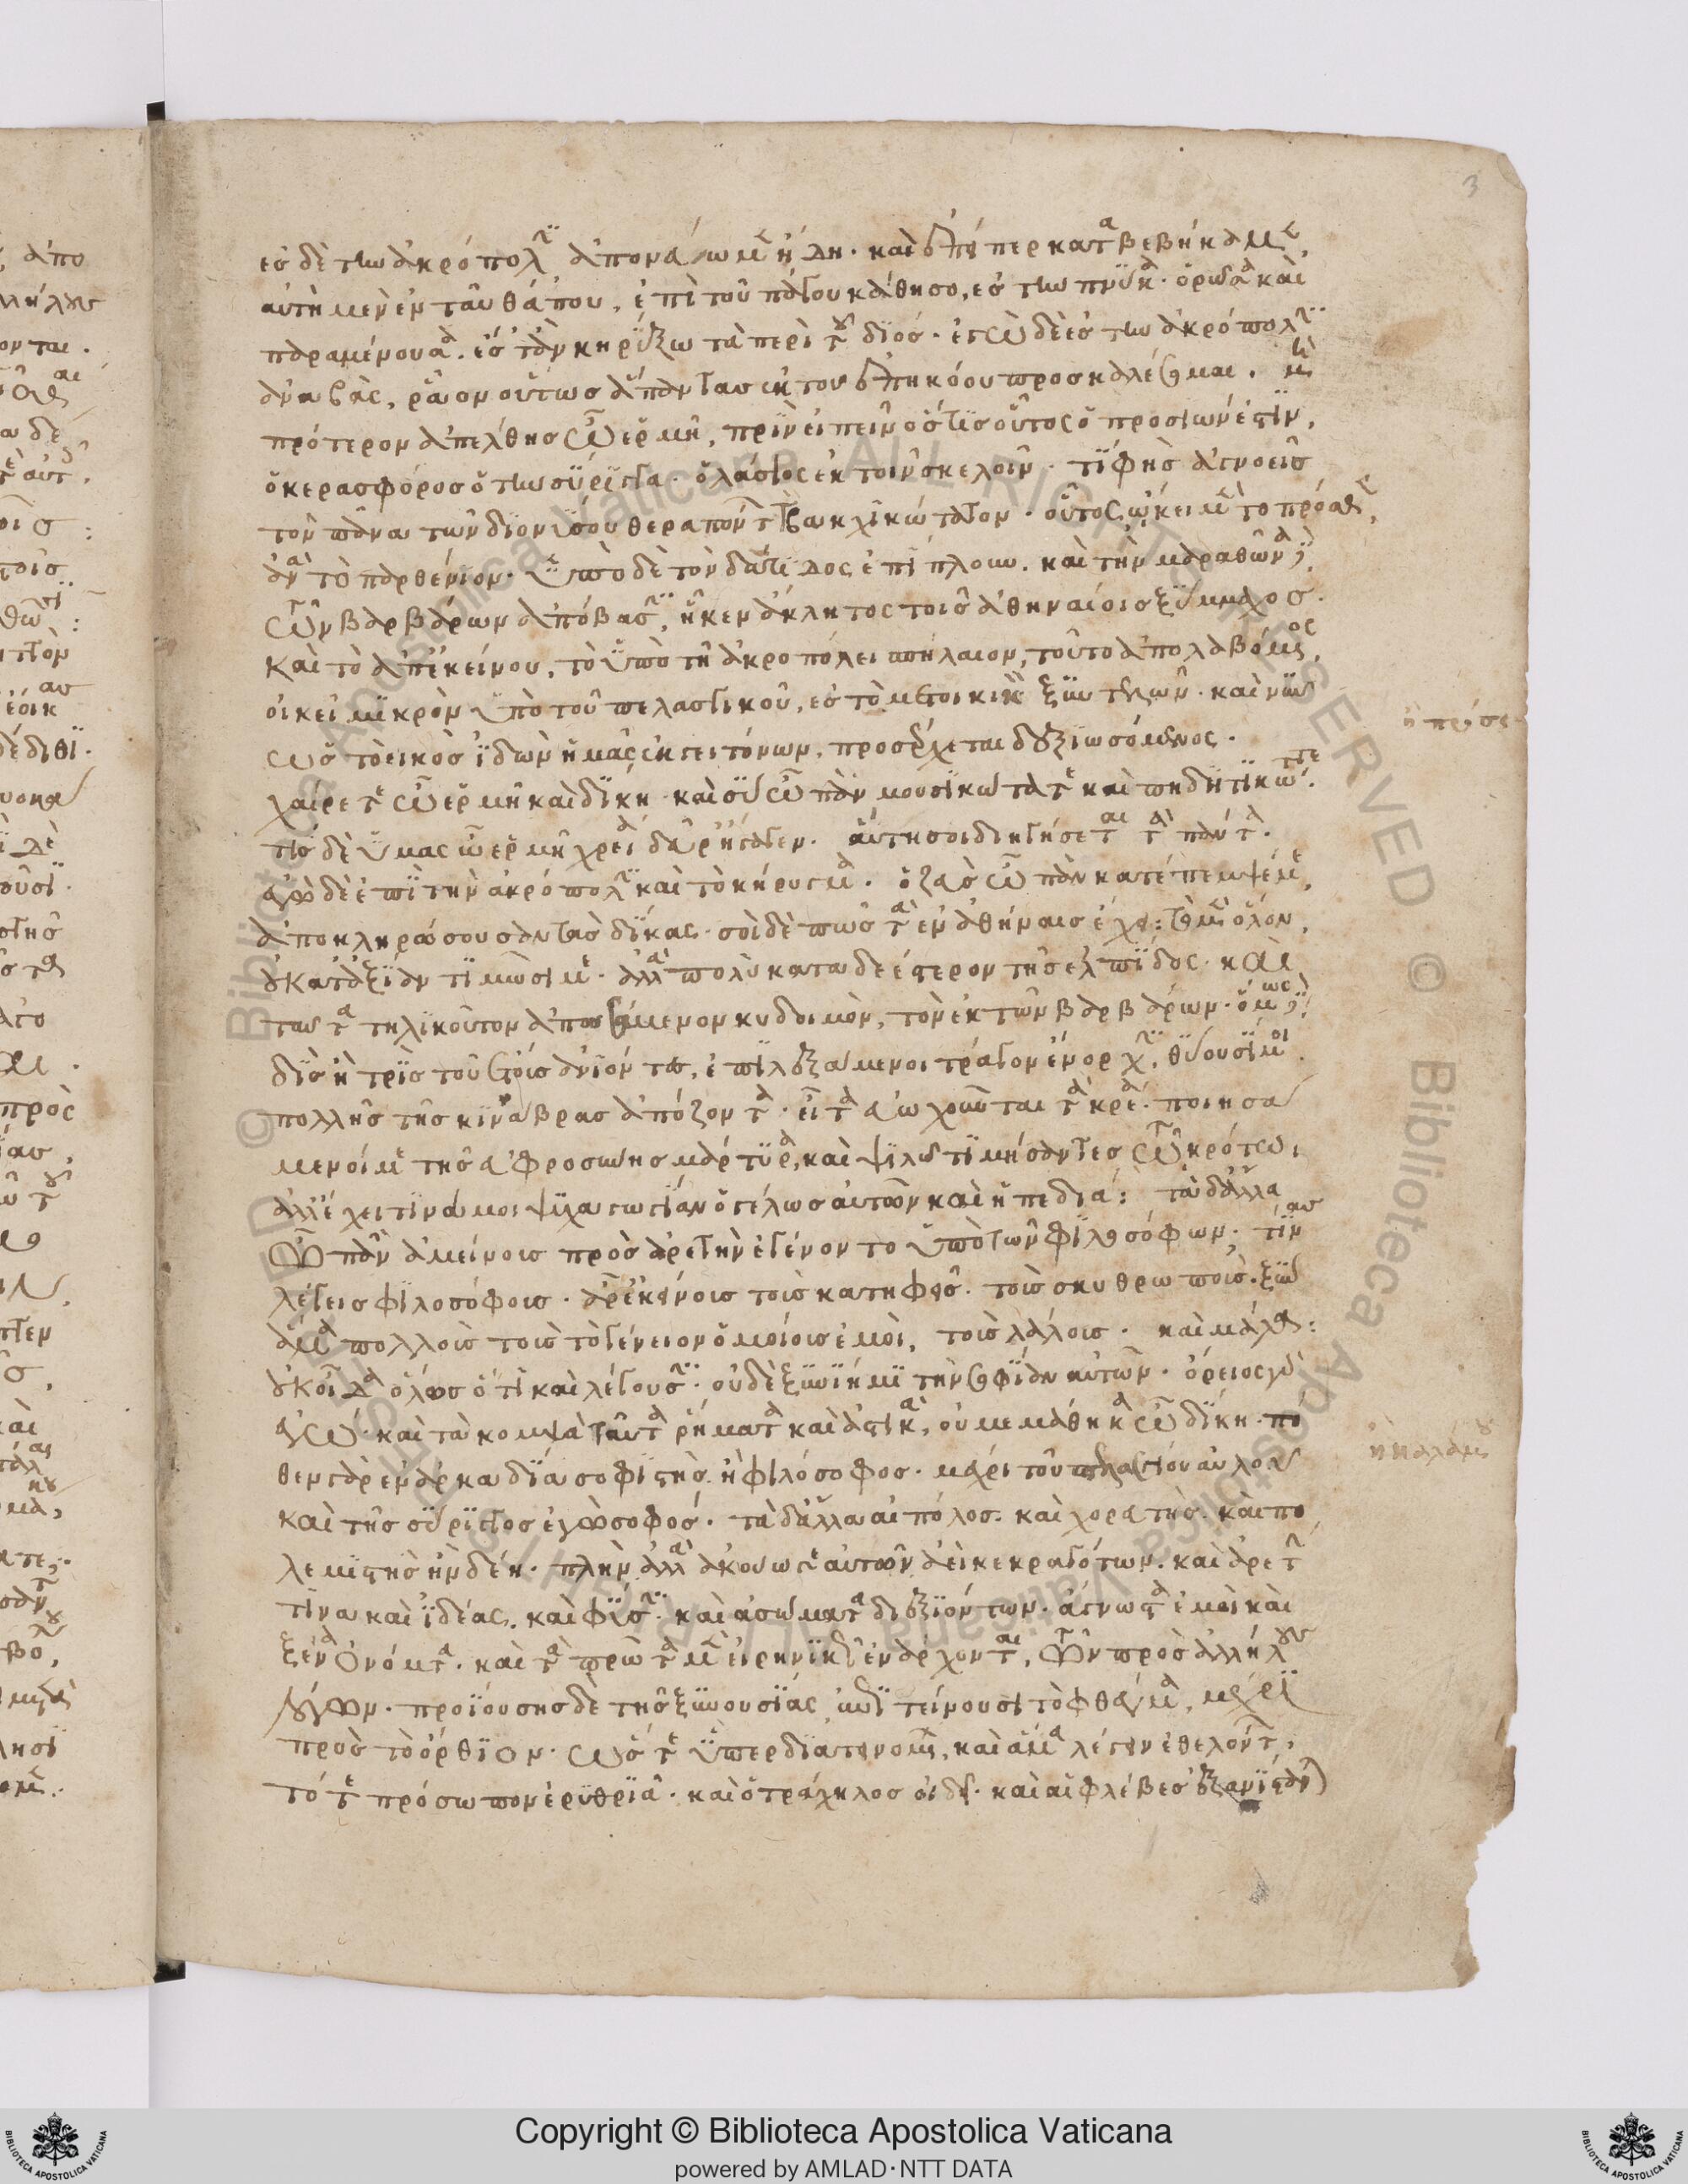 3
ἐς δὲ τὴν ἀκρόπολιν ἀπονεύωμεν ἤδη. καὶ ἐπείπερ καταβεβήκαμεν,
αὐτὴ μὲν ἐνταῦθά που, ἐπὶ τοῦ πάγου κάθησο, ἐς τὴν πνύκα ὁρῶσα καὶ
παραμένουσα. ἔστ᾽ ἂν κηρύξω τὰ περὶ τοῦ διός. ἐγὼ δὲ ἐς τὴν ἀκρόπολιν
ἀναβὰς, ῥᾷον οὕτως ἅπαντας ἐκ τοῦ ἐπηκόου προσκαλέσομαι. μὴ
πρότερον ἀπέλθῃς ὦ ἑρμῆ, πρὶν εἰπεῖν ὅστις οὗτος ὁ προσιών ἐστιν,
ὁ κερασφόρος ὁ τὴν σύριγγα. ὁ λάσιος ἐκ τοῖν σκελοῖν. τί φὴς ἀγνοεῖς
τὸν πᾶνα τῶν διονύσου θεραπόντων βακχικώτατον. οὗτος ᾤκει μὲν τὸ πρόσθεν,
ἀνὰ τὸ παρθένιον. ὑπὸ δὲ τὸν δάτιδος ἐπίπλουν. καὶ τὴν μαραθῶνάδε
τῶν βαρβάρων ἀπόβασιν, ἧκεν ἄκλητος τοῖς ἀθηναίοις ξύμμαχος.
καὶ τὸ ἀπ᾽ ἐκείνου, τὸ ὑπὸ τῇ ἀκροπόλει σπήλαιον, τοῦτο ἀπολαβόμενος,
οἰκεῖ μικρὸν ὑπὸ τοῦ πελασγικοῦ, ἐς τὸ μετοικικὸν ξυντελῶν. καὶ νῦν
ὡς τὸ εἰκὸς ἰδὼν ἡμᾶς ἐκ γειτόνων, προσέρχεται δεξιωσόμενος.
χαίρετε ὦ ἑρμῆ καὶ δίκη. καὶ σύ ὦ πάν μουσικώτατε καὶ πηδητικώτατε
τίς δὲ ὑμᾶς ὦ ἑρμῆ χρεία δεῦρ᾽ ἤγαγεν. αὕτη σοι διηγήσεται τὰ πάντα.
ἐγὼ δὲ ἐπὶ τὴν ἀκρόπολιν καὶ τὸ κήρυγμα. ὁ ζεὺς ὦ πὰν κατέπεμψέ με,
ἀποκληρώσουσαν τὰς δίκας. σοὶ δὲ πῶς τὰ ἐν ἀθήναις ἔχει: τὸ μὲν ὅλον,
οὐ κατ᾽ ἀξίαν τιμῶσί με. ἀλλὰ πολὺ καταδεέστερον τῆς ἐλπίδος. καὶ
ταῦτα τηλικοῦτον ἀπωσάμενον κυδοιμὸν, τὸν ἐκ τῶν βαρβάρων. ὅμως δὲ
δὶς ἢ τρὶς τοῦ ἔτους ἀνιόντες, ἐπιλεξάμενοι τράγον ἔνορχιν, θύουσί μοι
πολλῆς τῆς κινάβρας ἀπόζοντα. εἶτα εὐωχοῦνται τὰ κρέα. ποιησά
μενοί με τῆς εὐφροσύνης μάρτυρα, καὶ ψιλῷ τιμήσαντες τῷ κρότῳ.
ἀλλ᾽ ἔχει τινά μοι ψυχαγωγίαν ὁ γέλως αὐτῶν καὶ ἡ παιδιά: τὰ δ᾽ ἄλλα
ὦ πὰν ἀμείνους πρὸς ἀρετὴν ἐγένοντο ὑπὸ τῶν φιλοσόφων; τίνας
λέγεις φιλοσόφους. ἆρ᾽ ἐκείνους τοὺς κατηφεῖς. τοὺς σκυθρωποὺς. ξὺν
ἅμα πολλοὺς τοὺς τὸ γένειον ὁμοίους ἐμοὶ, τοὺς λάλους. καὶ μάλα:
οὐκ οἶδα ὅλως ὅ τι καὶ λέγουσιν. οὐδὲ ξυνίημι τὴν σοφίαν αὐτῶν. ὄρειος γὰρ
ἐγὼ. καὶ τὰ κομψὰ ταῦτα ῥήματα καὶ ἀστικὰ, οὐ μεμάθηκα ὦ δίκη. πό
θεν γὰρ ἐν ἀρκαδίᾳ σοφιστὴς ἢ φιλόσοφος. μέχρι τοῦ πλαγίου αὐλοῦ
καὶ τῆς σύριγγος ἐγὼ σοφός. τὰ δ᾽ ἄλλα αἰπόλος. καὶ χορευτὴς. καὶ πο
λεμιστὴς ἢν δέῃ. πλὴν ἀλλὰ ἀκούω γε αὐτῶν ἀεὶ κεκραγότων. καὶ ἀρετήν
τινα καὶ ἰδέας. καὶ φύσιν. καὶ ἀσώματα διεξιόντων. ἄγνωστα ἐμοὶ καὶ
ξένα ὀνόματα. καὶ τὰ πρῶτα μὲν εἰρηνικῶς ἐνάρχονται, τῶν πρὸς ἀλλήλους
λόγων. προϊούσης δὲ τῆς ξυνουσίας, ἐπιτείνουσι τὸ φθέγμα, μέχρι
πρὸς τὸ ὄρθιον. ὥστε ὑπερδιατεινομένων, καὶ ἅμα λέγειν ἐθελόντων,
τό τε πρόσωπον ἐρυθριᾷ. καὶ ὁ τράχηλος οἰδεῖ. καὶ αἱ φλέβες ἐξανίστανται
Copyright © Biblioteca Apostolica Vaticana
powered by AMLAD·NTT DATA